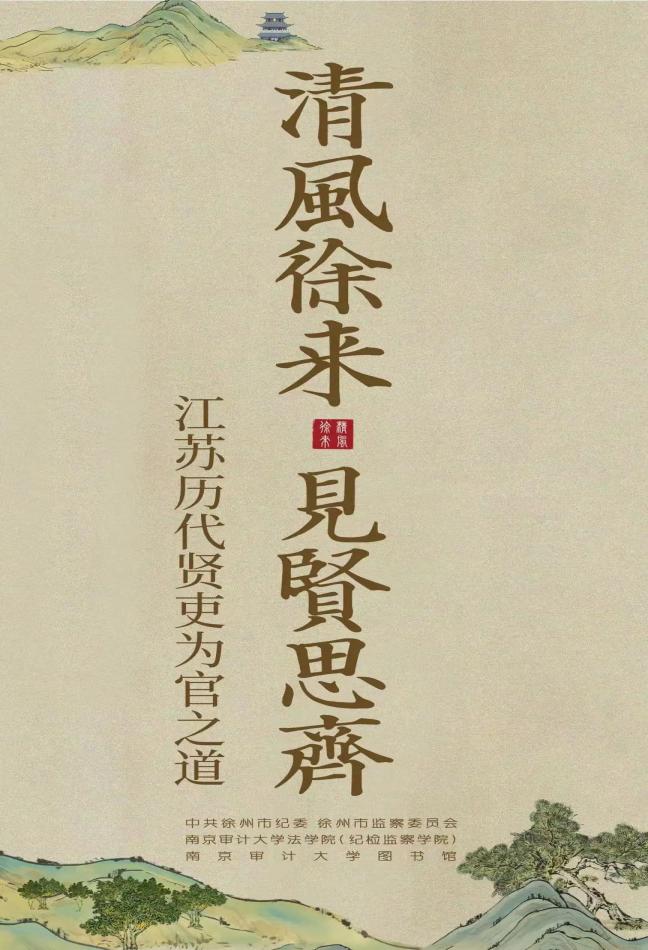 清風徐来
清風
徐来
見賢思齊
江苏历代贤吏为官之道
中共徐州市纪委 徐州市监察委员会
南京审计大学法学院(纪检监察学院)
南京审计大学图书馆